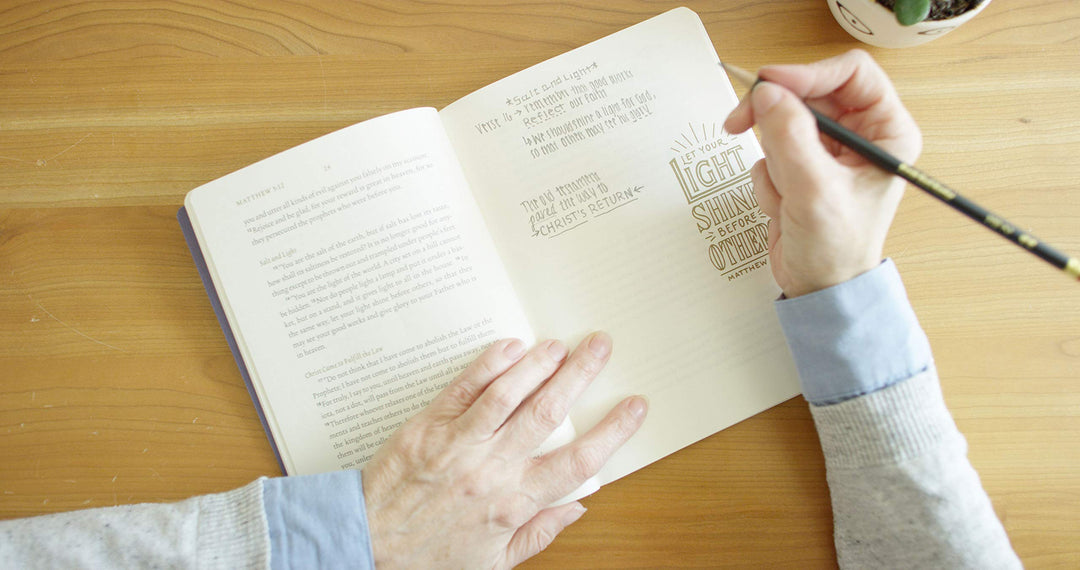 MATTHEW 5:12
you and utter all kinds of evil against you falsely on my account.
¹²Rejoice and be glad, for your reward is great in heaven, for so
they persecuted the prophets who were before you.
Salt and Light
¹³“You are the salt of the earth, but if salt has lost its taste,
how shall its saltiness be restored? It is no longer good for any-
thing except to be thrown out and trampled under people's feet.
¹⁴“You are the light of the world. A city set on a hill cannot
be hidden. ¹⁵Nor do people light a lamp and put it under a bas-
ket, but on a stand, and it gives light to all in the house. ¹⁶In
the same way, let your light shine before others, so that they
may see your good works and give glory to your Father who is
in heaven.
Christ Came to Fulfill the Law
¹⁷“Do not think that I have come to abolish the Law or the
Prophets; I have not come to abolish them but to fulfill them.
¹⁸For truly, I say to you, until heaven and earth pass away
iota, not a dot, will pass from the Law until all is
¹⁹Therefore whoever relaxes one of the least
ments and teaches others to do the
the kingdom of heaven
them will be
you, unless
*Salt and Light*
Verse 16 → remember that good works
Reflect our Faith
↳ We should shine a light for God,
so that others may see his glory!
The old testament
paved the way to
→CHRIST'S RETURN←
LET YOUR
LIGHT
SHINE
BEFORE
OTHERS
MATTHEW